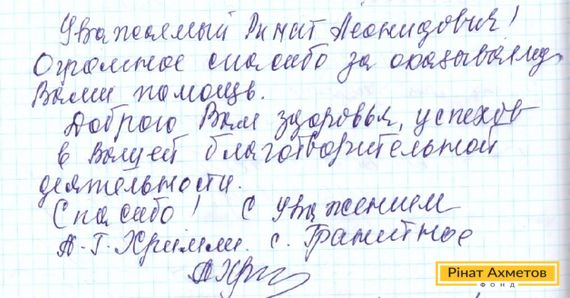 Уважаемый Ринат Леонидович!
Огромное спасибо за оказываемую
Вами помощь.
Доброго Вам здоровья, успехов
в Вашей благотворительной
деятельности.
Спасибо! С уважением
А. Г. с. Гранитное
Рінат Ахметов
ФОНД